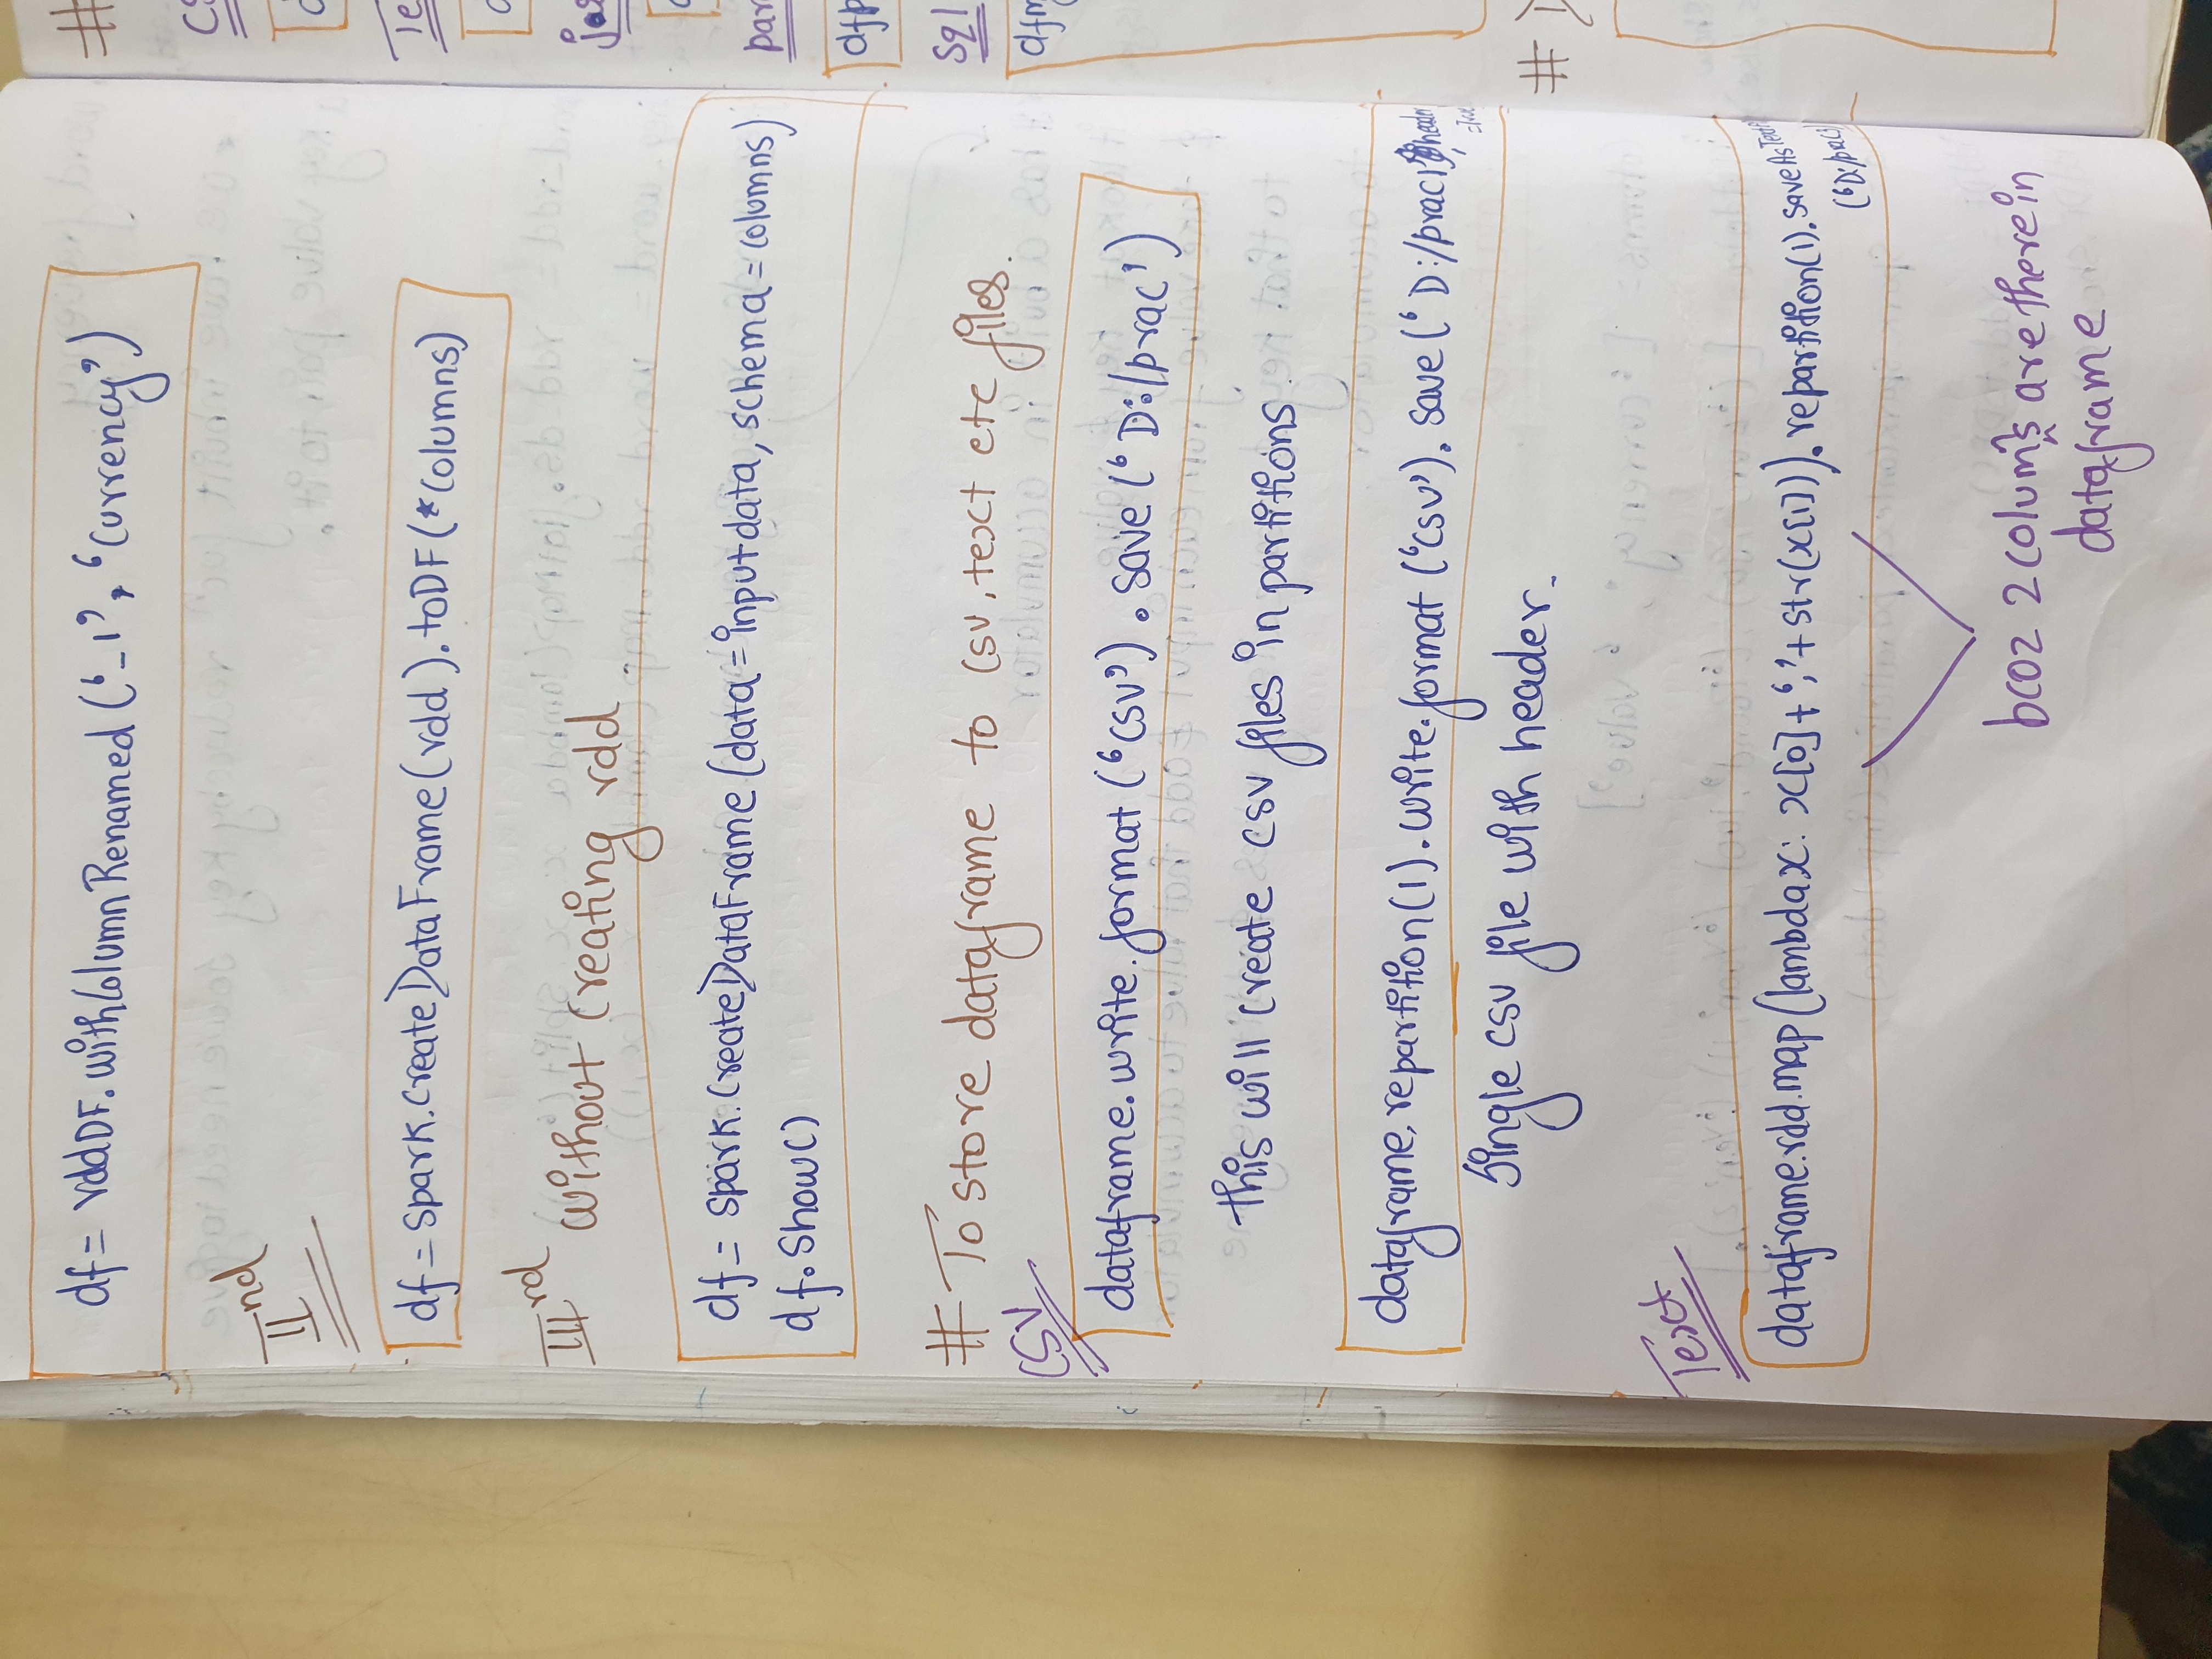 df = rddDF.withColumnRenamed('_1', 'Currency')
IInd
df = spark.createDataFrame(rdd).toDF(*columns)
IIIrd without creating rdd.
df = spark.CreateDataFrame(data=inputdata, schema=columns)
df.Show()
# To store dataframe to csv, text etc files.
CSV
dataframe.write.format('csv').save('D:/prac')
this will create csv files in partitions.
dataframe.repartition(1).write.format('csv').save('D:/prac1', header
=True
Single csv file with header.
Text
dataframe.rdd.map(lambda x: x[0]+','+str(x[1])).repartition(1).saveAsTextF
('D:/prac3
bcoz 2 columns are there in
dataframe
#
CS
d
Te
d
jas
par
dfp
Sql
dfm
#